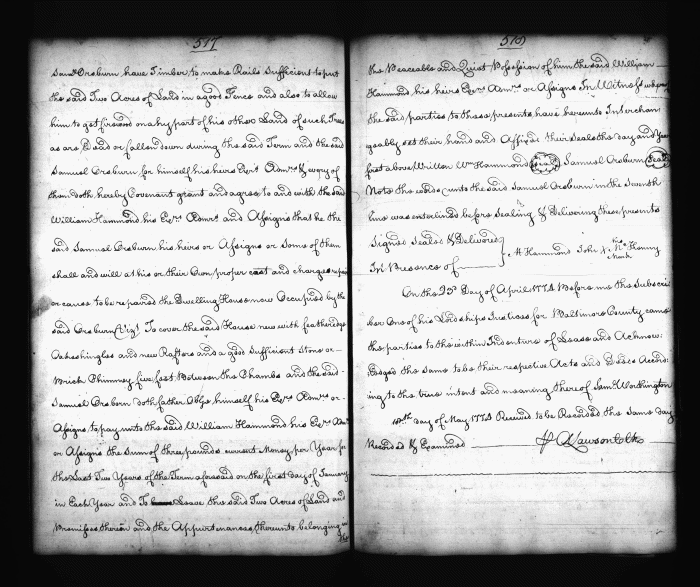 517
Saml. Orsburn have Timber to make Rails Sufficient to put
the said Two Acres of Land in a good Fence and also to allow
him to get firewood on any part of his other Land of such Trees
as are Dead or fallen down during the said Term and the said
Samuel Orsburn for himself his heirs Exrs. Admrs. & every of
them doth hereby Covenant grant and agree to and with the said
William Hammond his Exrs. Admrs. and Assigns that he the
said Samuel Orsburn his heirs or Assigns or Some of them
shall and will at his or their Own proper cost and charges repair
or cause to be repaired the Dwelling House now Occupied by the
said Orsburn (Vizt.) To cover the said House new with featheredge
Oak shingles and new Rafters and a good Sufficient Stone or
Brick Chimney five foot Between the and the said
Samuel Orsburn doth further Oblige himself his Exrs. Admrs. or
Assigns to pay unto the said William Hammond his Exrs. Admrs.
or Assigns the Sum of three pounds current Money per Year for
the Last Two Years of the Term aforesaid on the first day of January
in Each Year and To Leave the said Two Acres of Land and
Premises therein and the Appurtenances thereunto belonging in
the
518
the Peaceable and Quiet Possession of him the said William
Hammond his heirs Exrs. Admrs. or Assigns In Witness whereof
the said parties to these presents have hereunto Interchan
geably set their hand and Affixed their Seals the day and Year
first above Written Wm. Hammond (Seal) Samuel Orsburn (Seal)
Note the words unto the said Samuel Orsburn in the Seventh
line was enterlined before Sealing & Delivering these presents
Signed Sealed & Delivered
In Presence of
H Hammond John X Hanny
his
mark
On the 25th Day of April 1774 Before me the Subscri
ber One of his Lordships Justices for Baltimore County came
the parties to the within Indenture of Lease and Acknow
ledged the same to be their respective Acts and Deeds Accord
ing to the true intent and meaning thereof Saml. Worthington
18th. day of May 1774 Received to be Recorded the same day
Recorded & Examined
Lawson Clk